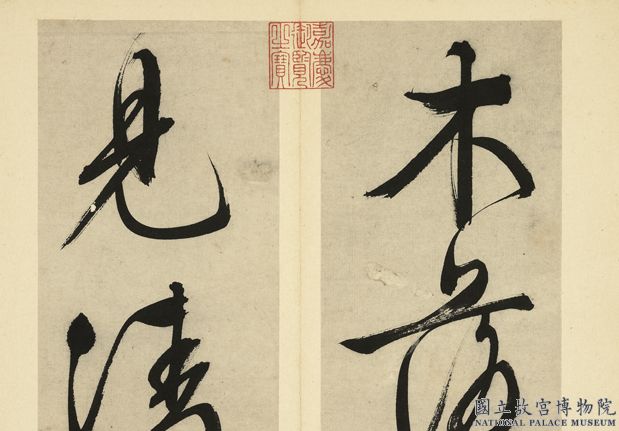 木落
見清
嘉慶
御覽
之寶
國立故宮博物院
NATIONAL PALACE MUSEUM